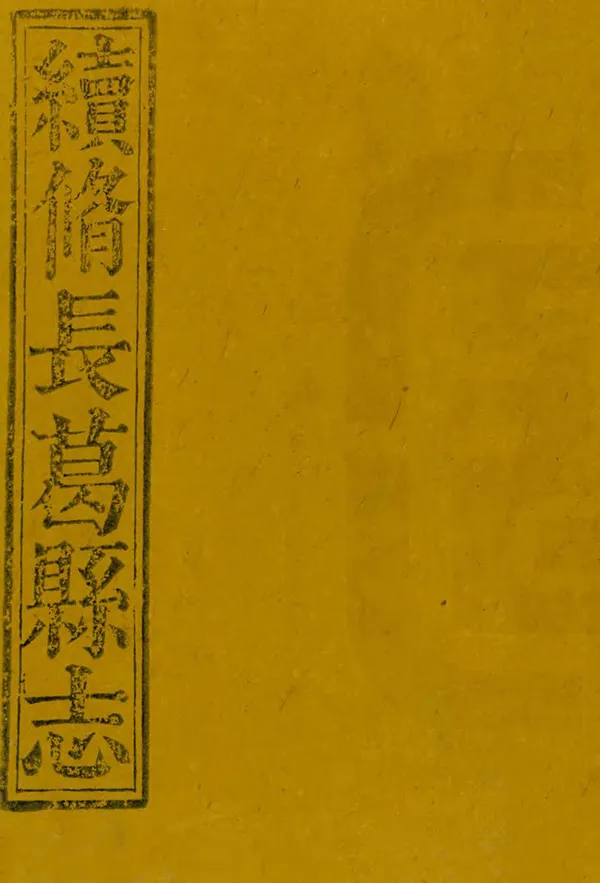 續脩長葛縣志